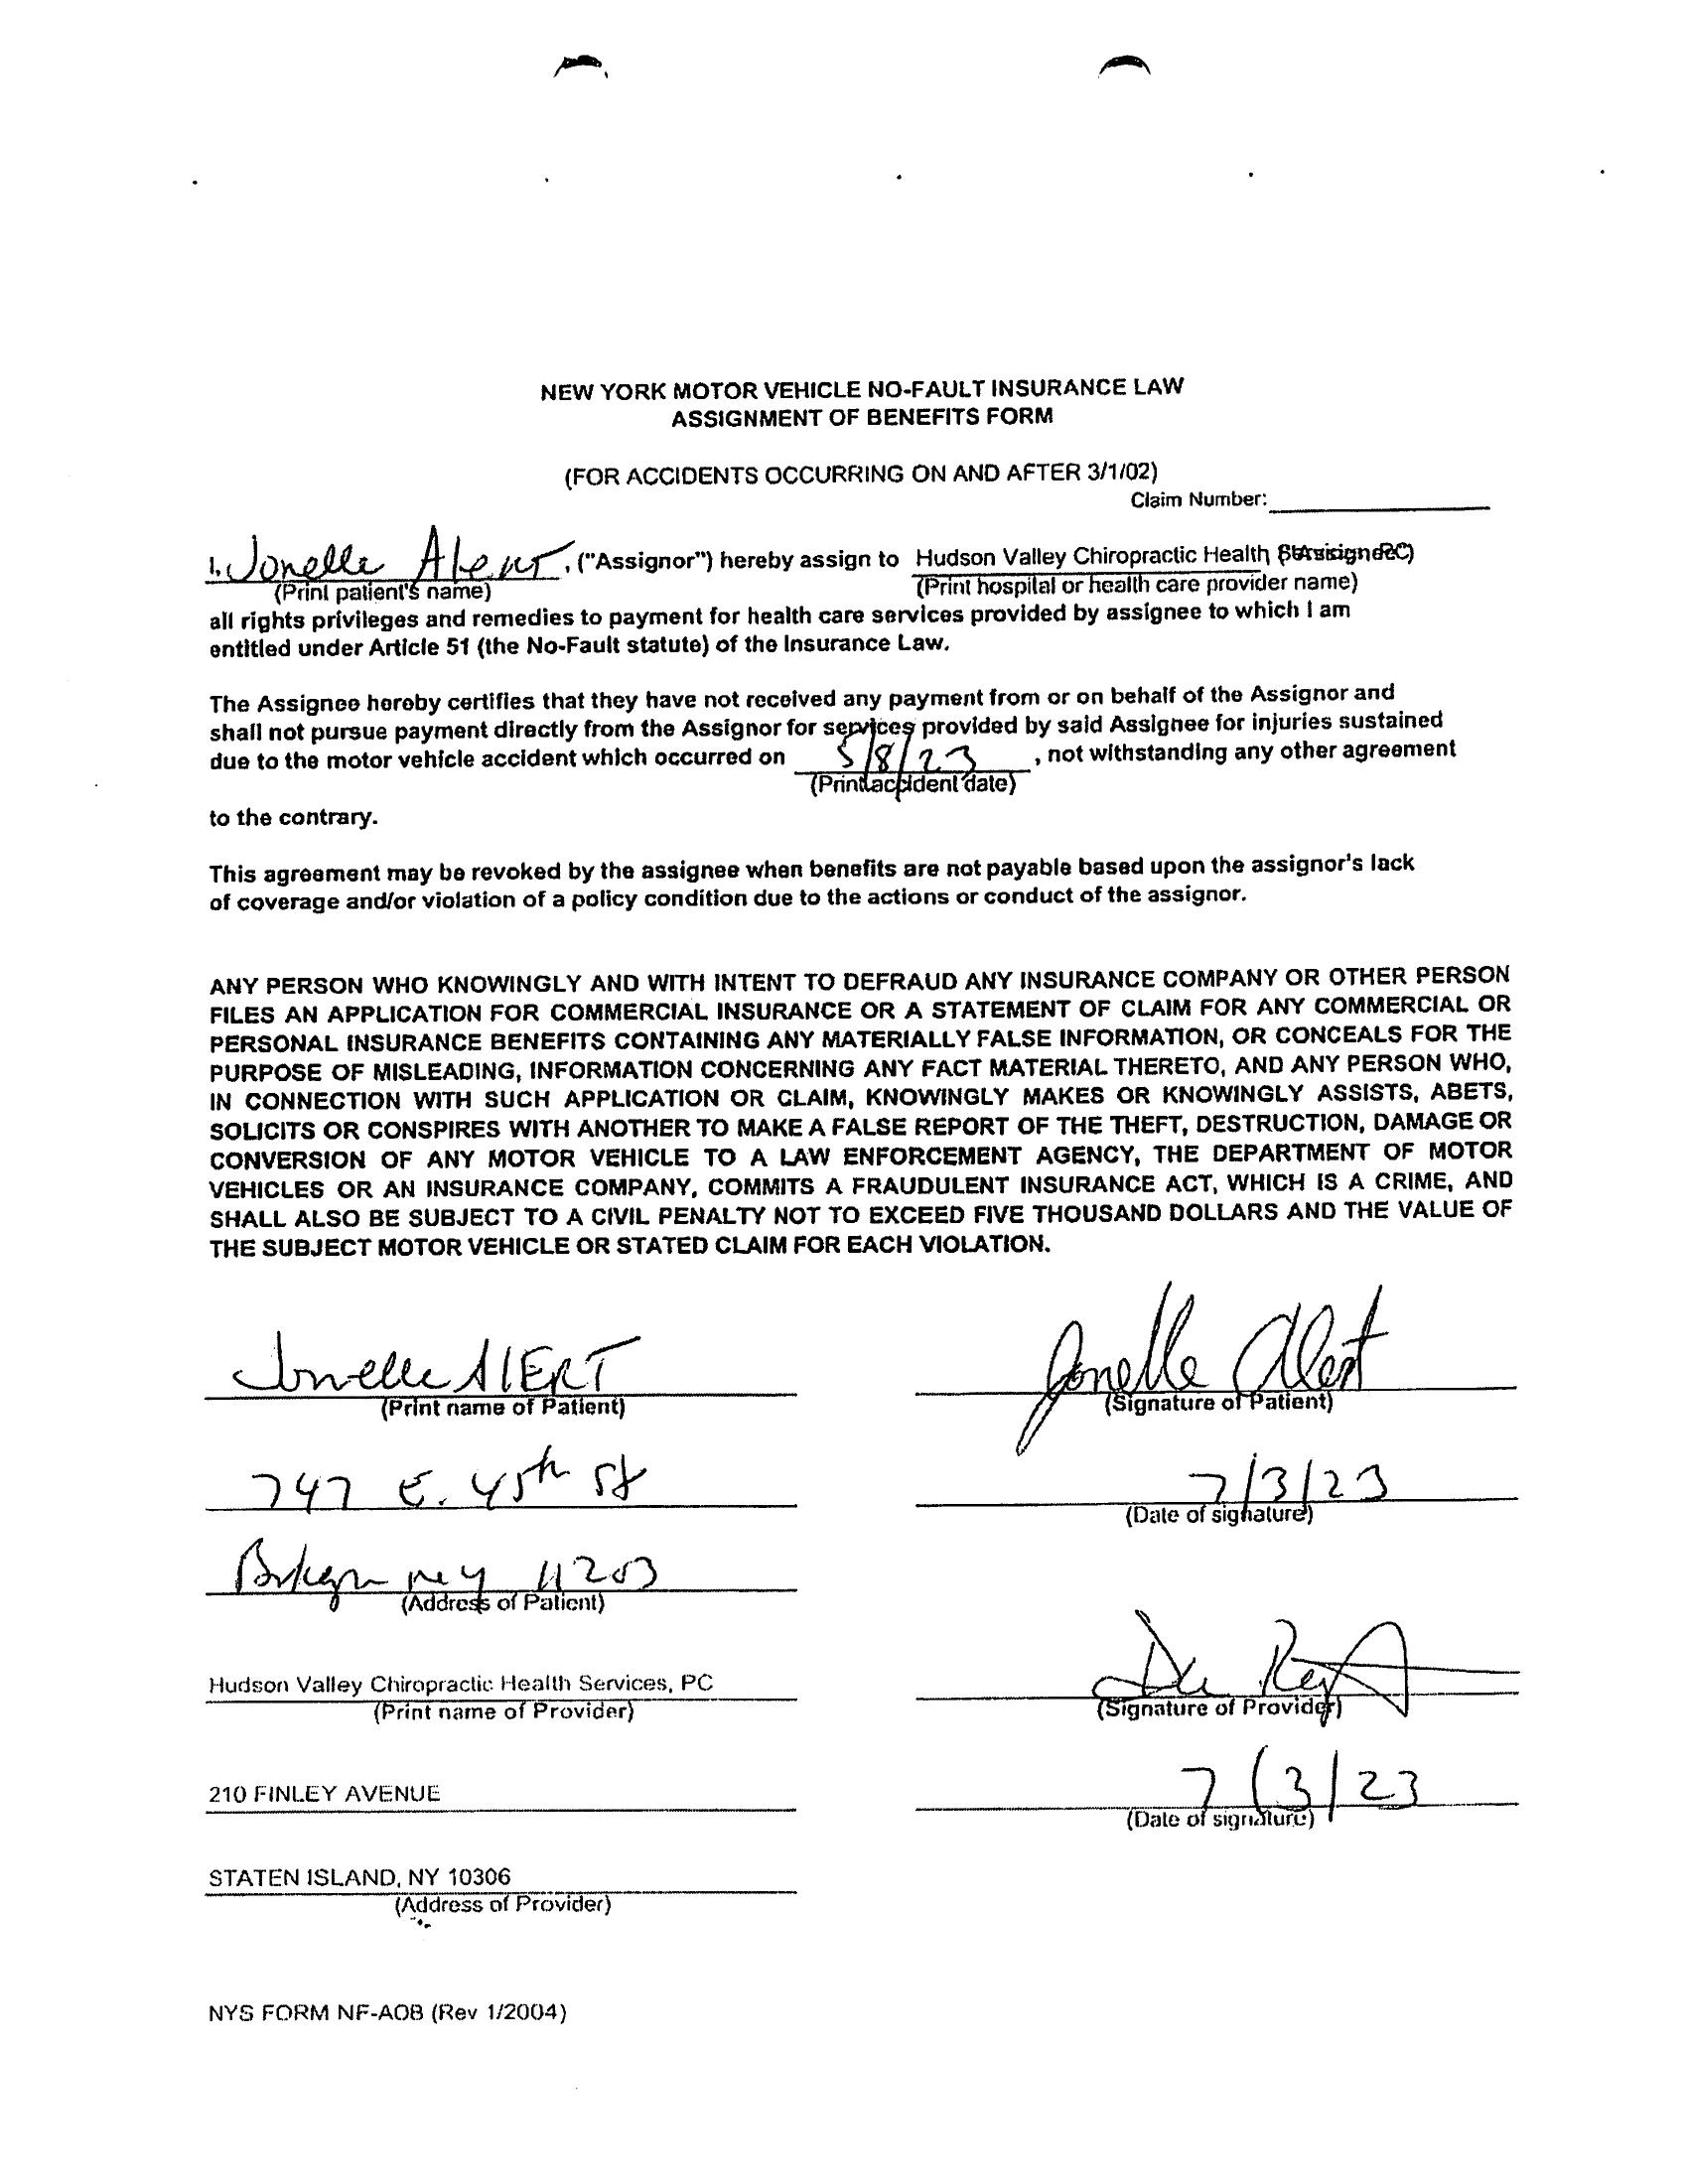 NEW YORK MOTOR VEHICLE NO-FAULT INSURANCE LAW
ASSIGNMENT OF BENEFITS FORM
(FOR ACCIDENTS OCCURRING ON AND AFTER 3/1/02)
Claim Number:
I, Jonelle Alert, ("Assignor") hereby assign to Hudson Valley Chiropractic Health
(Print patient's name) (Print hospital or health care provider name)
all rights privileges and remedies to payment for health care services provided by assignee to which I am
entitled under Article 51 (the No-Fault statute) of the Insurance Law.
The Assignee hereby certifies that they have not received any payment from or on behalf of the Assignor and
shall not pursue payment directly from the Assignor for services provided by said Assignee for injuries sustained
due to the motor vehicle accident which occurred on 5/8/23, not withstanding any other agreement
(Print accident date)
to the contrary.
This agreement may be revoked by the assignee when benefits are not payable based upon the assignor's lack
of coverage and/or violation of a policy condition due to the actions or conduct of the assignor.
ANY PERSON WHO KNOWINGLY AND WITH INTENT TO DEFRAUD ANY INSURANCE COMPANY OR OTHER PERSON
FILES AN APPLICATION FOR COMMERCIAL INSURANCE OR A STATEMENT OF CLAIM FOR ANY COMMERCIAL OR
PERSONAL INSURANCE BENEFITS CONTAINING ANY MATERIALLY FALSE INFORMATION, OR CONCEALS FOR THE
PURPOSE OF MISLEADING, INFORMATION CONCERNING ANY FACT MATERIAL THERETO, AND ANY PERSON WHO,
IN CONNECTION WITH SUCH APPLICATION OR CLAIM, KNOWINGLY MAKES OR KNOWINGLY ASSISTS, ABETS,
SOLICITS OR CONSPIRES WITH ANOTHER TO MAKE A FALSE REPORT OF THE THEFT, DESTRUCTION, DAMAGE OR
CONVERSION OF ANY MOTOR VEHICLE TO A LAW ENFORCEMENT AGENCY, THE DEPARTMENT OF MOTOR
VEHICLES OR AN INSURANCE COMPANY, COMMITS A FRAUDULENT INSURANCE ACT, WHICH IS A CRIME, AND
SHALL ALSO BE SUBJECT TO A CIVIL PENALTY NOT TO EXCEED FIVE THOUSAND DOLLARS AND THE VALUE OF
THE SUBJECT MOTOR VEHICLE OR STATED CLAIM FOR EACH VIOLATION.
Jonelle AlERT Jonelle Alert
(Print name of Patient) (Signature of Patient)
747 E. 45th St 7/3/23
(Date of signature)
11203
(Address of Patient)
Hudson Valley Chiropractic Health Services, PC
(Print name of Provider) (Signature of Provider)
210 FINLEY AVENUE 7/3/23
(Date of signature)
STATEN ISLAND, NY 10306
(Address of Provider)
NYS FORM NF-AOB (Rev 1/2004)